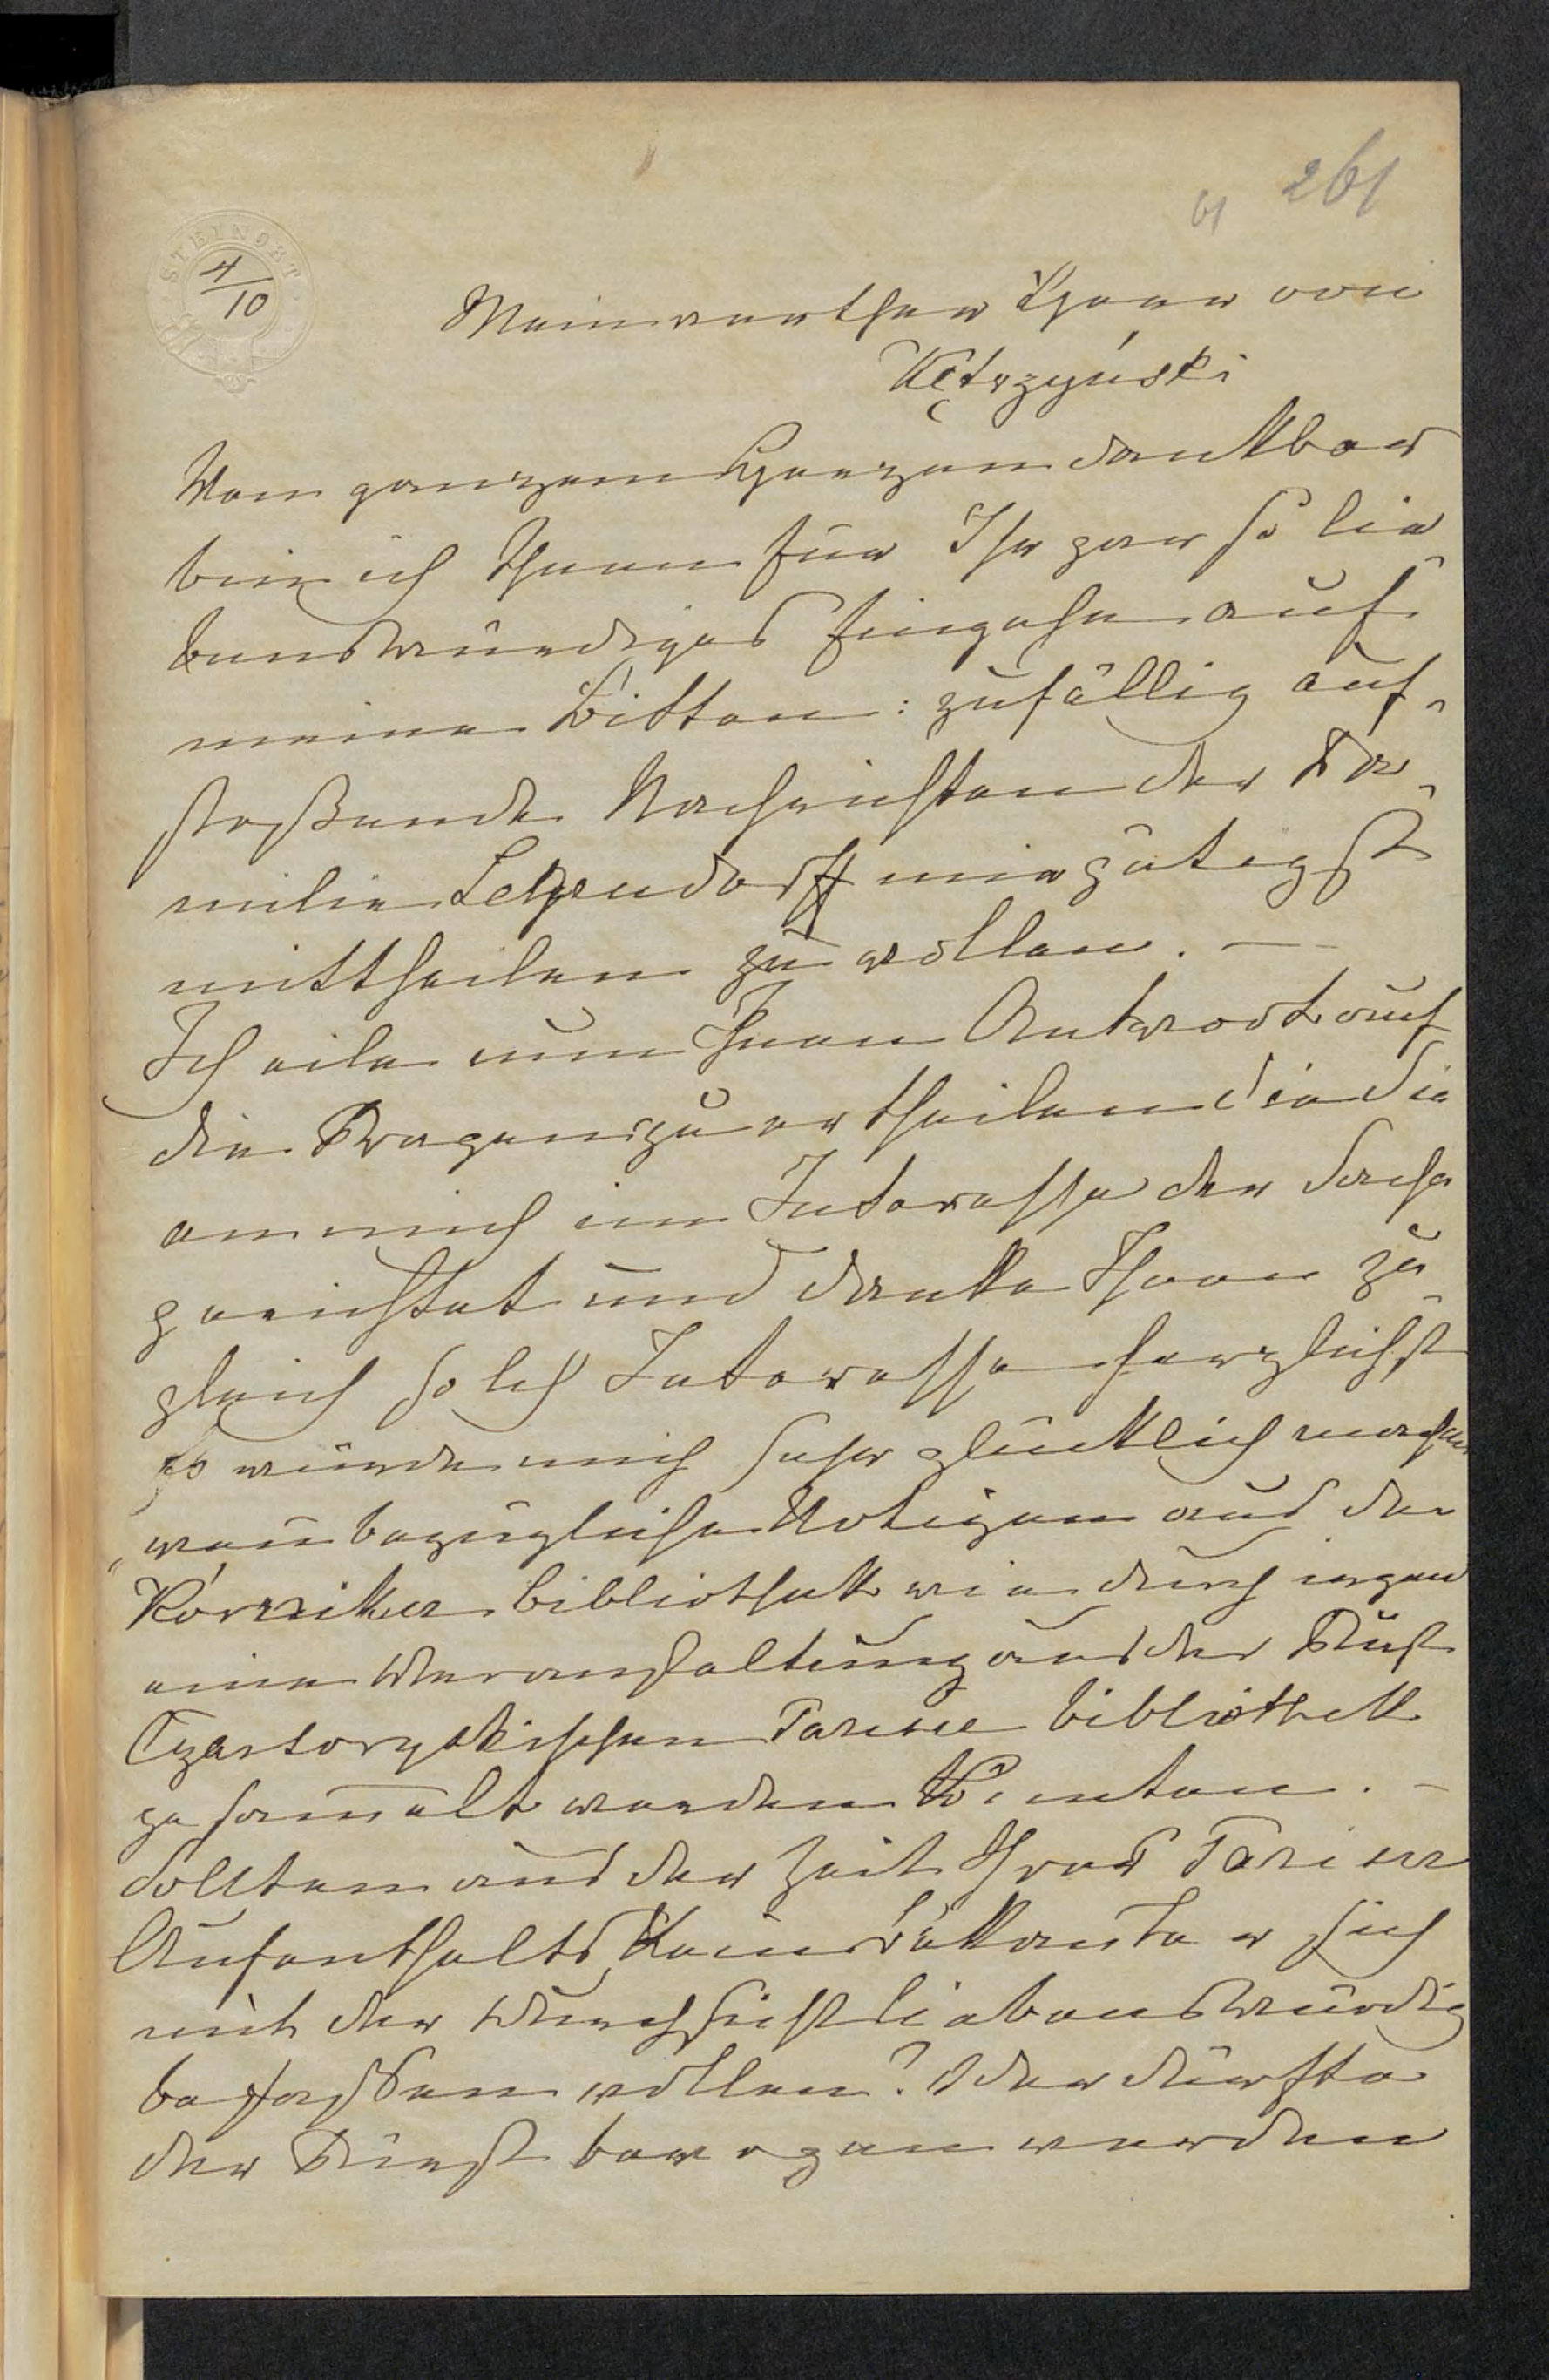 261
61
STEINORT
4/10
Mein werther Herr von
Kętrzyński
Von ganzem Herzen dankbar
bin ich Ihnen für Ihr gar so lie-
benswürdiges Eingehn auf
meine Bitten: zufällig auf-
stoßende Nachrichten der Fa-
milie Lehndorff mir gütigst
mittheilen zu wollen. —
Ich eile nun Ihnen Antwort auf
die Fragen zu ertheilen die Sie
an mich im Interesse der Sache
gerichtet und danke Ihnen zu-
gleich solch Interesse herzlichst
Es würde mich sehr glücklich machen
wenn bezügliche Notizen aus der
Kórniker Bibliothek wie durch irgend
eine Veranstaltung aus der Fürst
Czartoryskischen Pariser Bibliothek
gesammelt werden könnten. —
Sollten aus der Zeit Ihres Pariser
Aufenthalts kein Bekannter sich
mit der Durchsicht liebenswürdig
befassen wollen? Oder dürfte
der Fürst bewogen werden